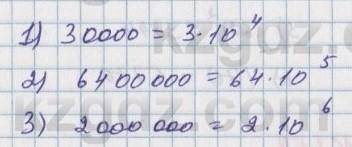 1) 30000 = 3·10⁴
2) 6400000 = 64·10⁵
3) 2000000 = 2·10⁶